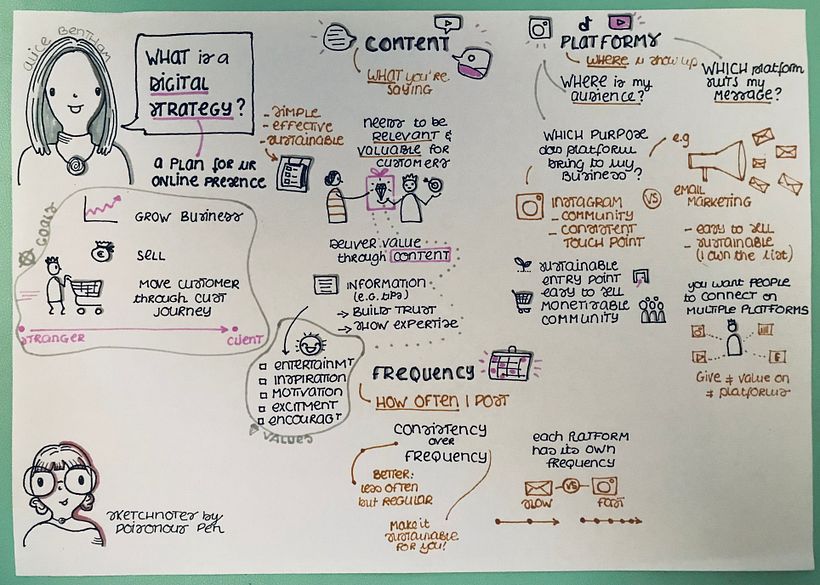 ALICE BENTHAM
WHAT is a
DIGITAL
STRATEGY?
a PLAN FOR UR
ONLINE PRESENCE
- SIMPLE
- EFFECTIVE
- SUSTAINABLE
GOALS
GROW BUSINESS
SELL
MOVE CUSTOMER
through CUST
JOURNEY
STRANGER
CLIENT
CONTENT
WHAT you're
SAYING
NEEDS to be
RELEVANT &
VALUABLE for
CUSTOMERS
DELIVER VALUE
through CONTENT
INFORMATION
(e.g. tips)
→ BUILD TRUST
→ SHOW EXPERTISE
ENTERTAINMT
INSPIRATION
MOTIVATION
EXCITMENT
ENCOURAGT
VALUES
FREQUENCY
HOW OFTEN I POST
CONSISTENCY
OVER
FREQUENCY
BETTER:
less OFTEN
but REGULAR
Make it
SUSTAINABLE
FOR YOU!
each PLATFORM
has its own
FREQUENCY
VS
SLOW
FAST
PLATFORMS
WHERE u show up
WHERE is my
AUDIENCE?
WHICH platform
SUITS my
MESSAGE?
WHICH PURPOSE
does platform
bring to my
BUSINESS?
e.g
INSTAGRAM
- COMMUNITY
- CONSISTENT
TOUCH POINT
VS
EMAIL
MARKETING
- easy to sell
- SUSTAINABLE
(I own the list)
SUSTAINABLE
ENTRY POINT
easy to sell
MONETISABLE
COMMUNITY
you want PEOPLE
to CONNECT on
MULTIPLE PLATFORMS
Give ≠ value on
≠ platforms
SKETCHNOTES by
POISONOUS PEN